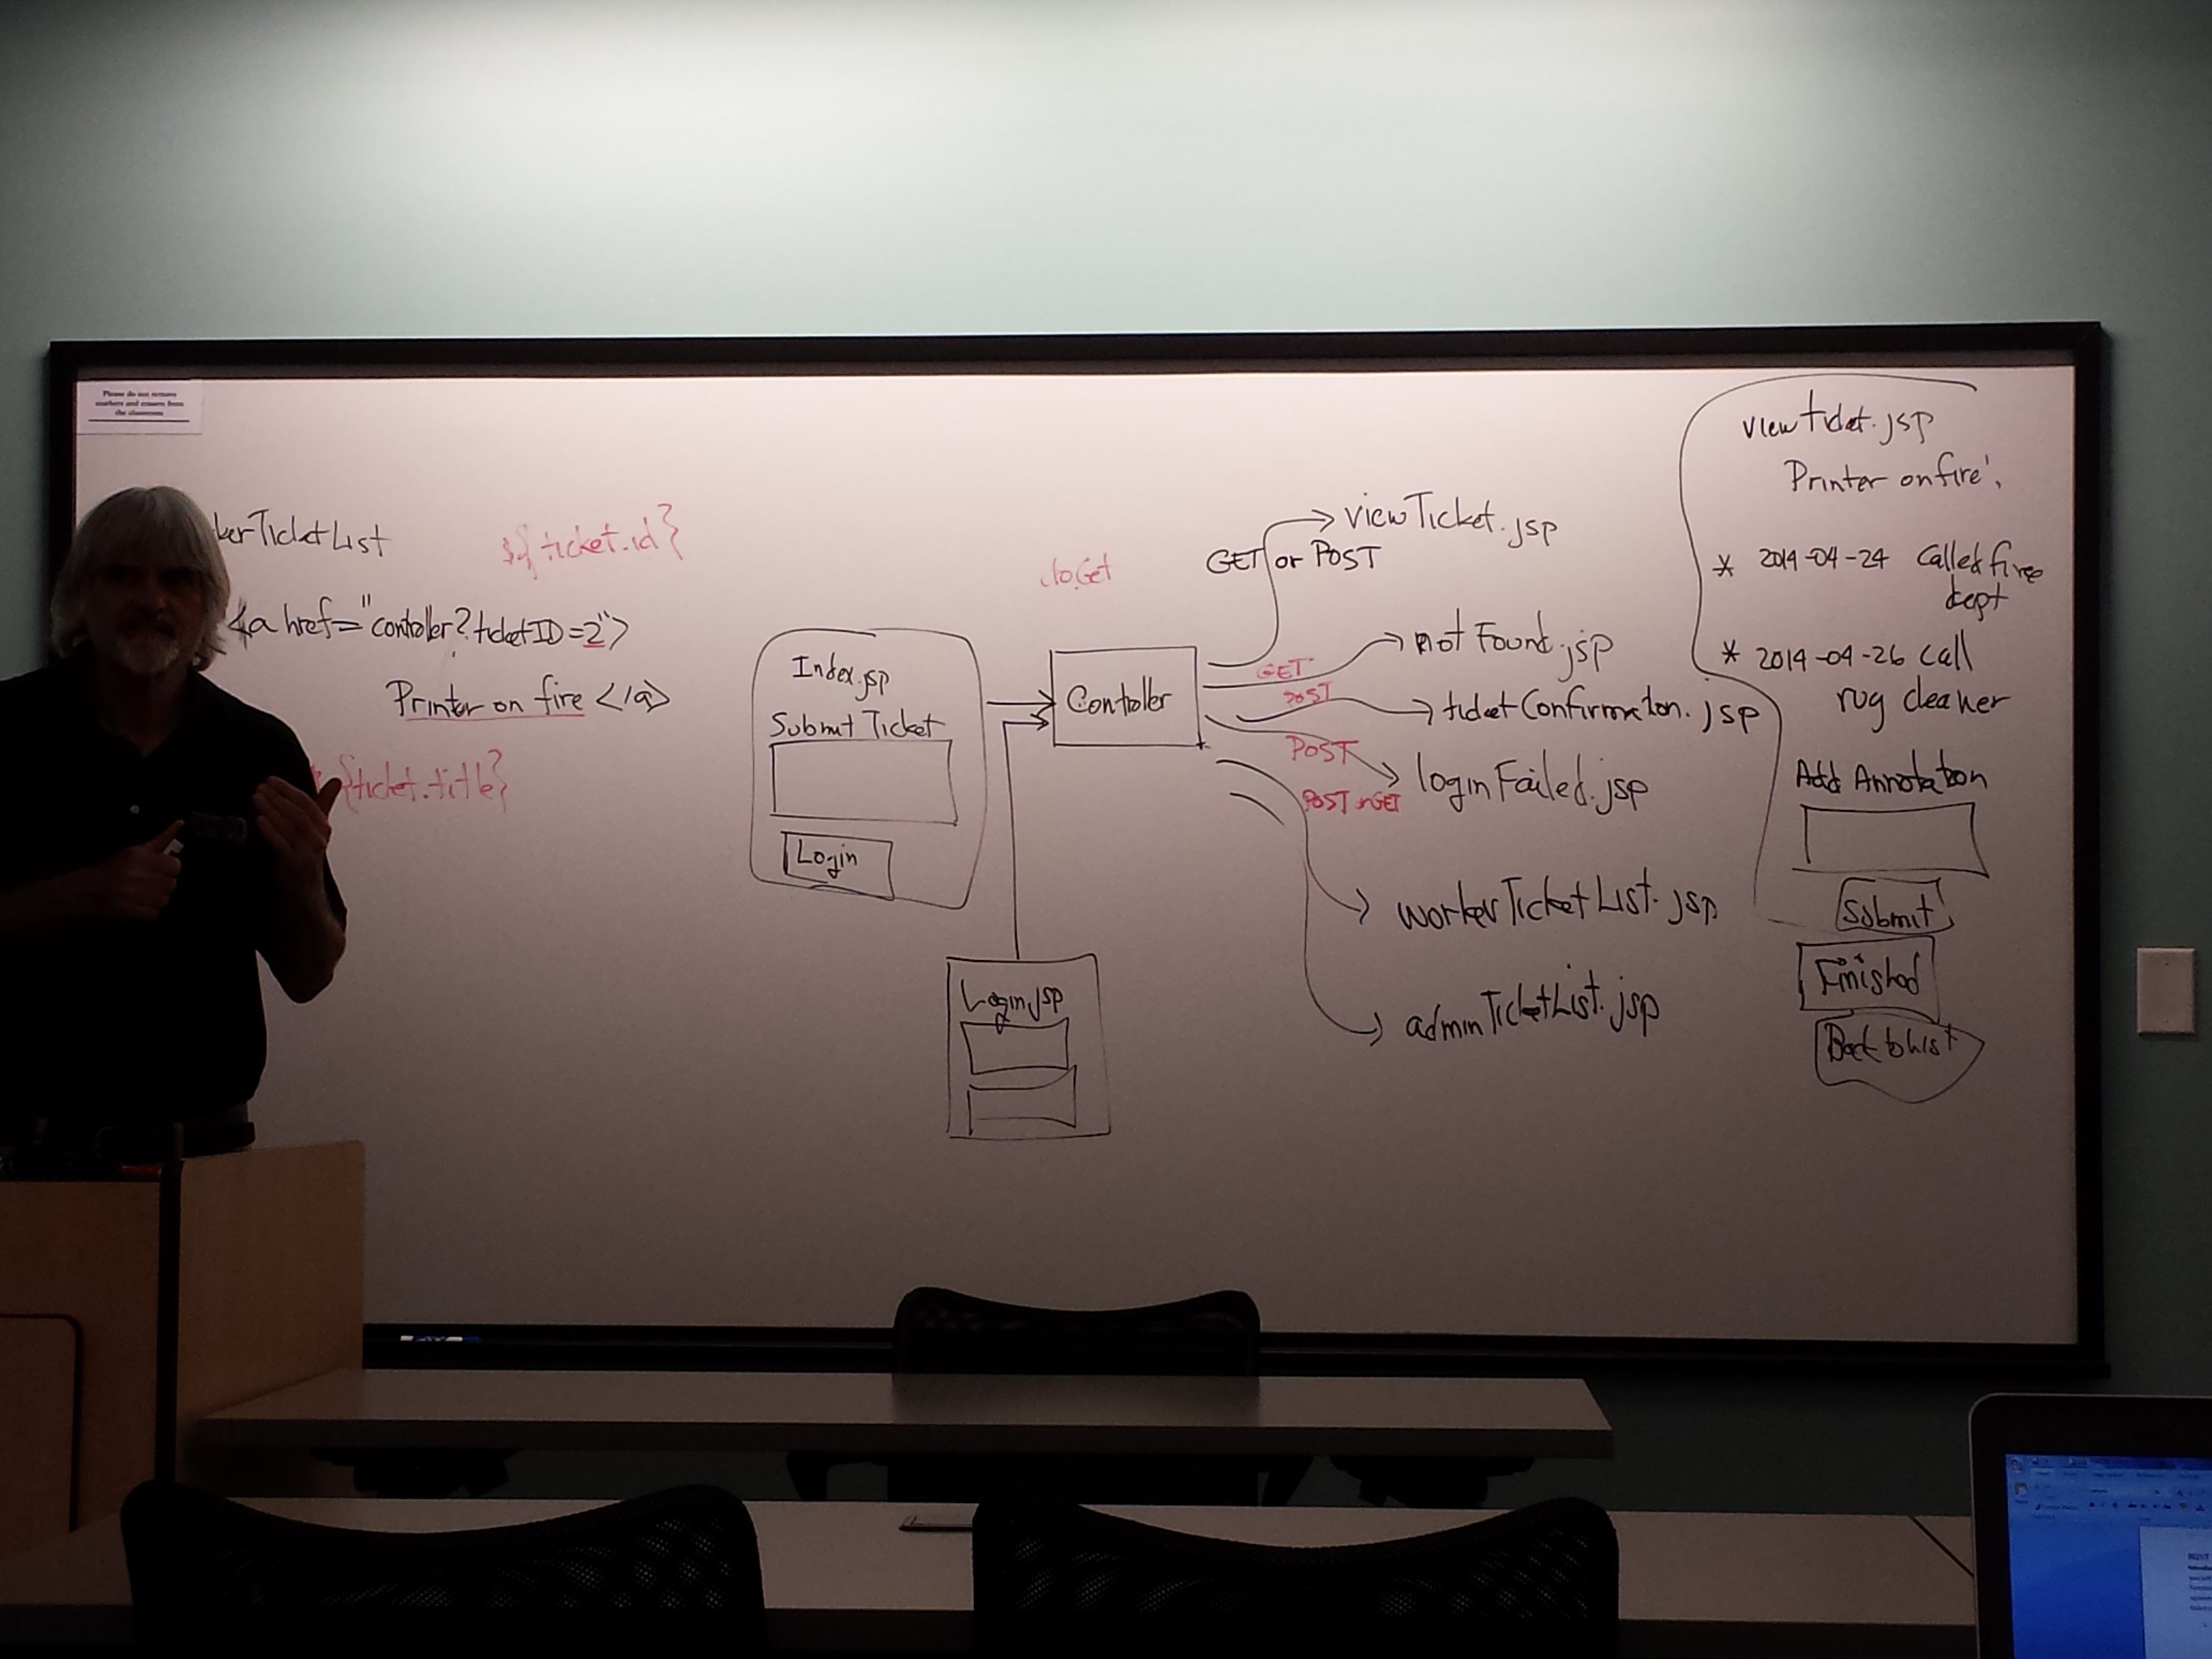 Please do not remove
markers and erasers from
the classroom
kerTicketList
${ticket.id}
<a href="controller?ticketID=2">
Printer on fire </a>
${ticket.title}
Index.jsp
Submit Ticket
Login
Login.jsp
doGet
Controller
GET or POST
viewTicket.jsp
GET
notFound.jsp
POST
ticketConfirmation.jsp
POST
loginFailed.jsp
POST or GET
workerTicketList.jsp
adminTicketList.jsp
viewTicket.jsp
Printer on fire!
* 2014-04-24 Called fire
dept
* 2014-04-26 call
rug cleaner
Add Annotation
Submit
Finished
Back to List